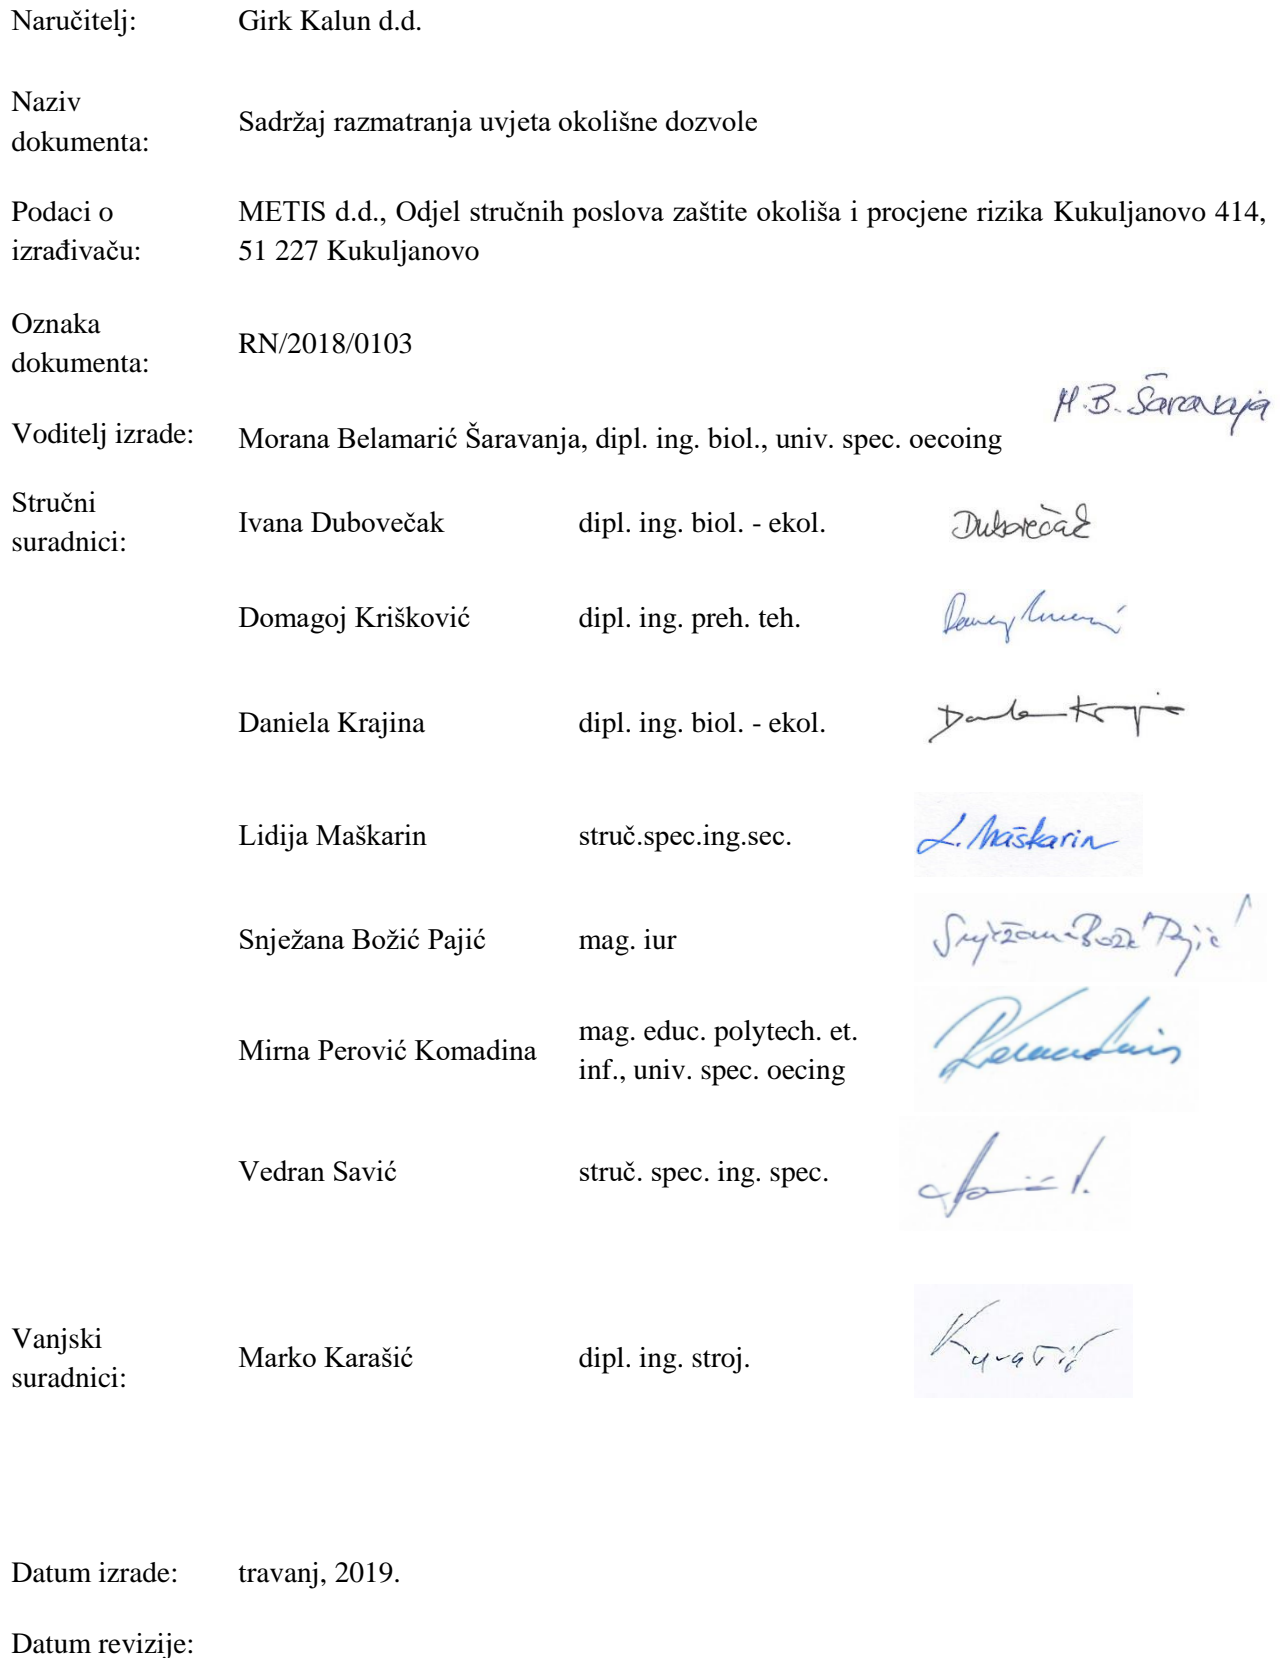 Naručitelj: Girk Kalun d.d.
Naziv
dokumenta: Sadržaj razmatranja uvjeta okolišne dozvole
Podaci o
izrađivaču: METIS d.d., Odjel stručnih poslova zaštite okoliša i procjene rizika Kukuljanovo 414,
51 227 Kukuljanovo
Oznaka
dokumenta: RN/2018/0103
M.B. Šaravanja
Voditelj izrade: Morana Belamarić Šaravanja, dipl. ing. biol., univ. spec. oecoing
Stručni
suradnici: Ivana Dubovečak dipl. ing. biol. - ekol. Dubovečak
Domagoj Krišković dipl. ing. preh. teh.
Daniela Krajina dipl. ing. biol. - ekol.
Lidija Maškarin struč.spec.ing.sec. L. Maškarin
Snježana Božić Pajić mag. iur Snježana Božić Pajić
Mirna Perović Komadina mag. educ. polytech. et.
inf., univ. spec. oecing
Vedran Savić struč. spec. ing. spec.
Vanjski
suradnici: Marko Karašić dipl. ing. stroj.
Datum izrade: travanj, 2019.
Datum revizije: